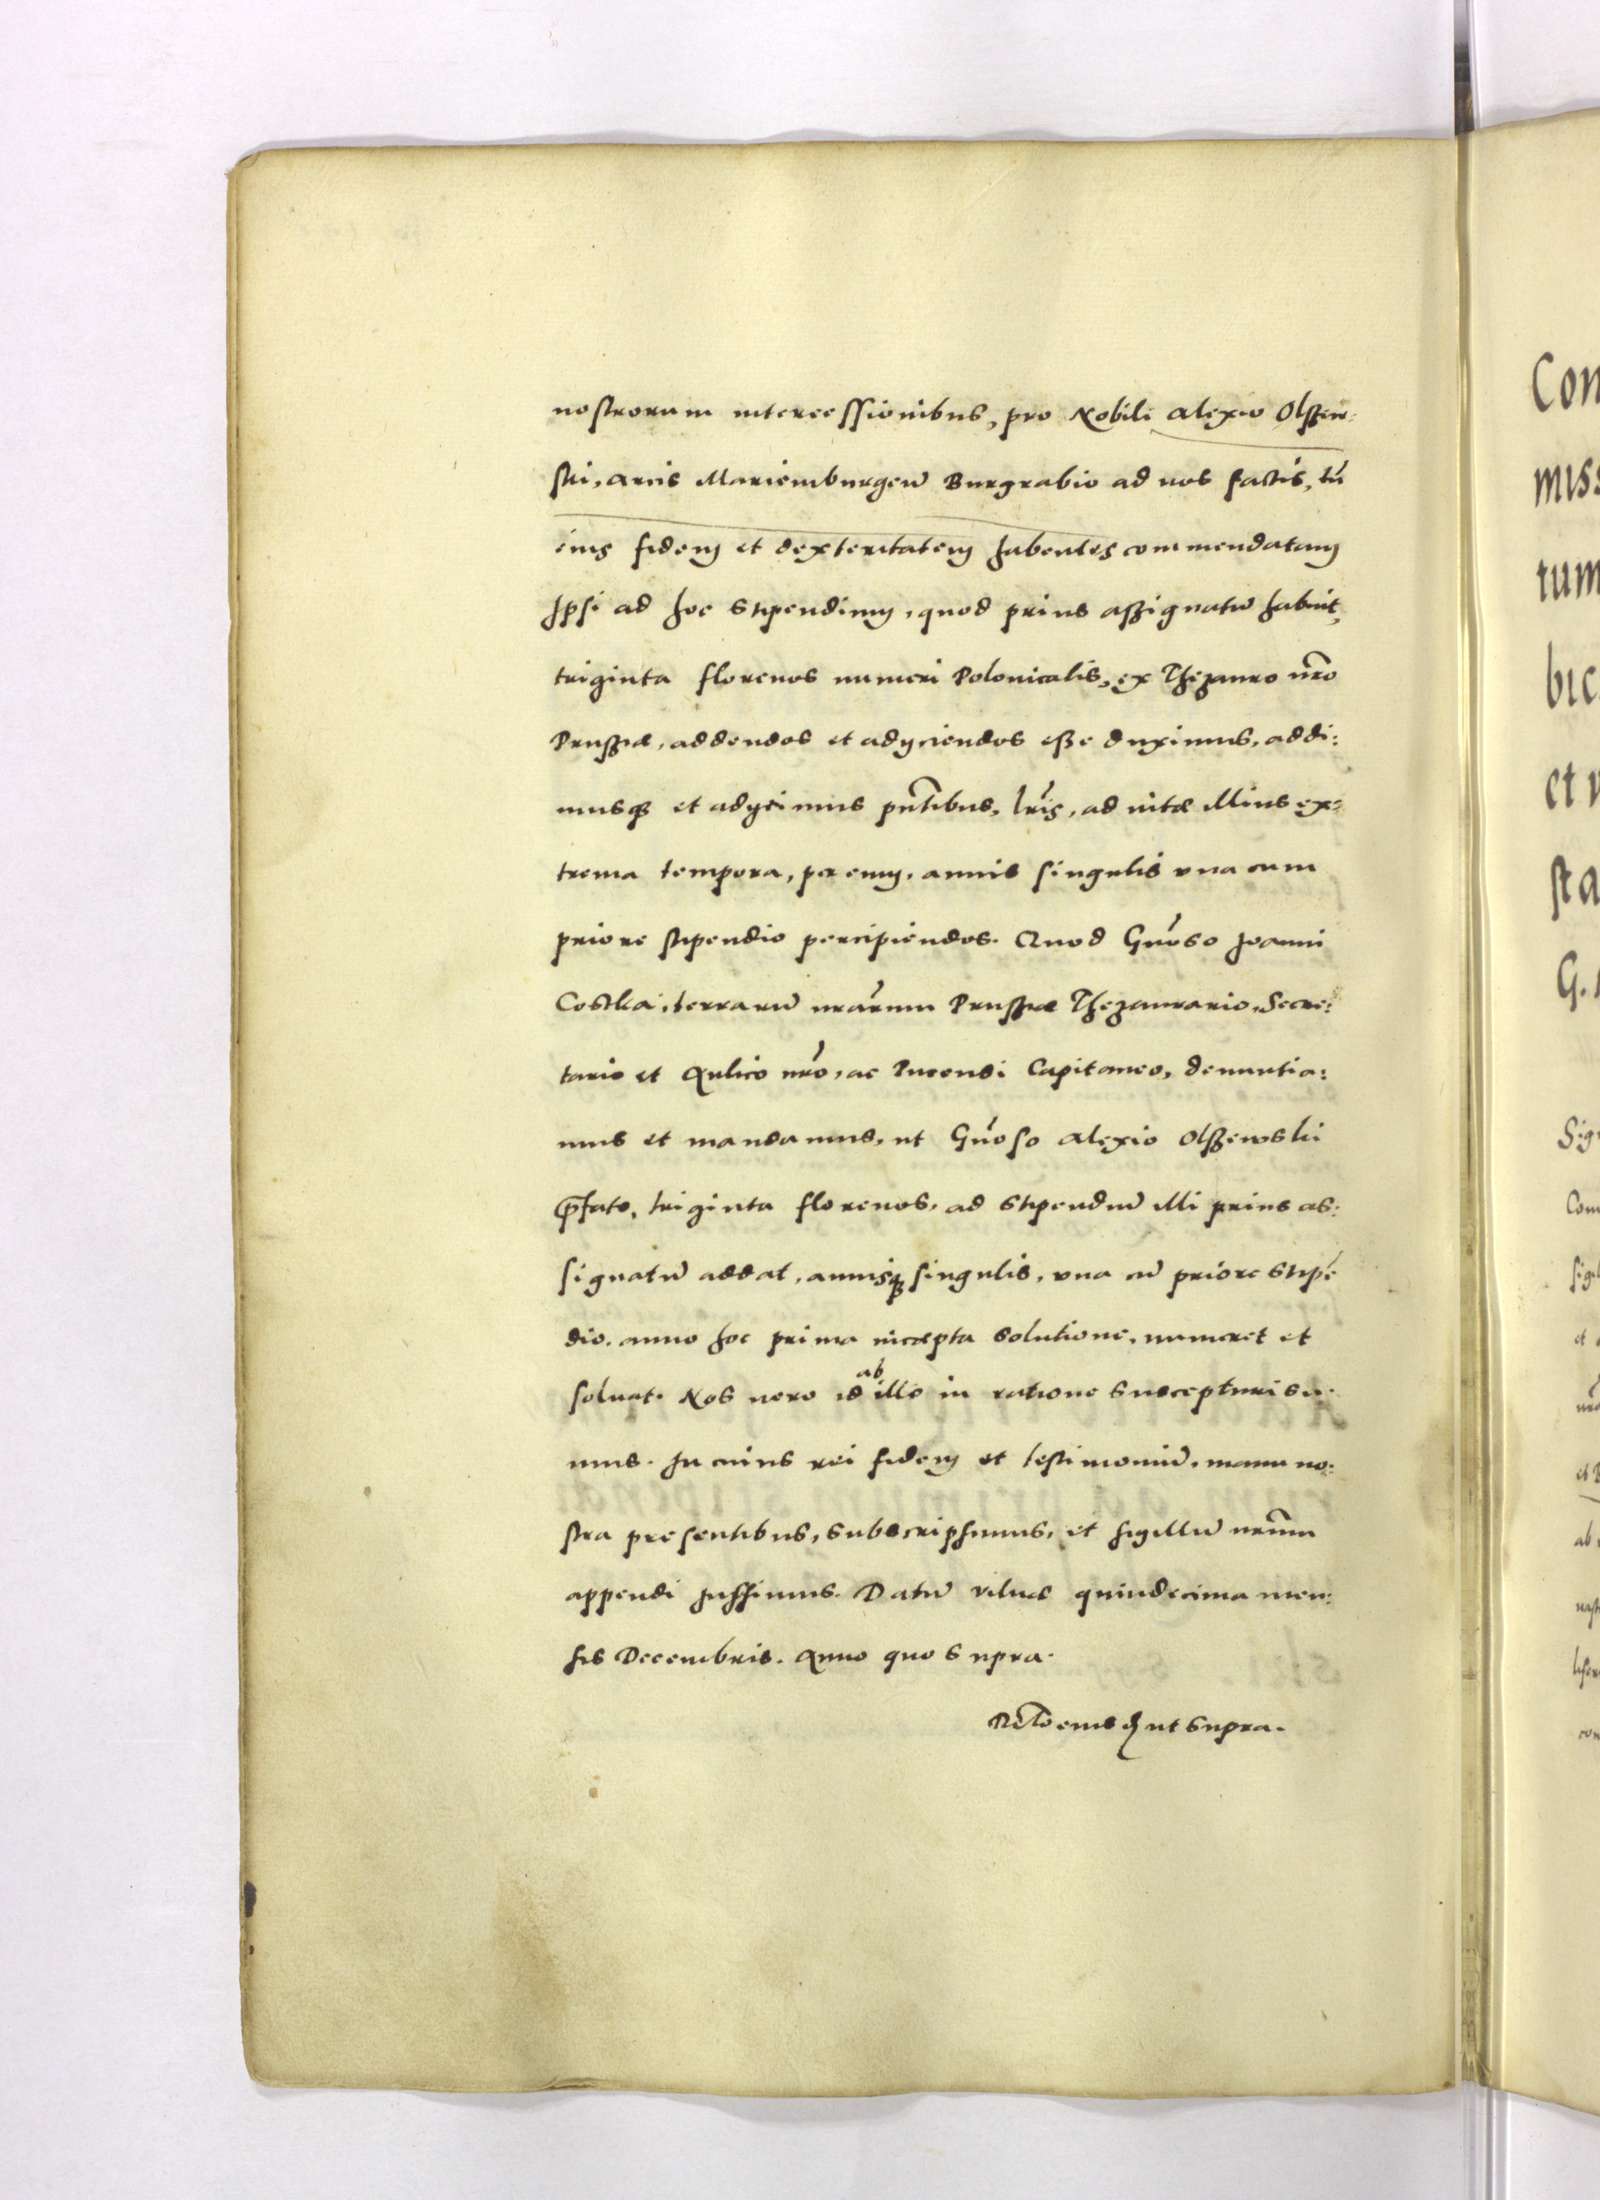 nostrorum intercessionibus, pro Nobili Alexio Olszew-
ski, arcis Mariemburgeñ Burgrabio ad nos factis, tũ
eius fidem et dexteritatem habentes commendatam
Ipsi ad hoc stipendium, quod prius assignatũ habuit,
triginta florenos numeri Polonicalis, ex Thezauro nr̃o
Prussiæ, addendos et adyciendos esse duximus, addi:
musq3 et adycimus pñtibus, lr̃is, ad vitæ illius ex:
trema tempora, per eum, annis singulis vna cum
priore stipendio percipiendos. Quod Gñoso Joanni
Costka, terrarũ nrãrum Prussiæ Thezaurario, Secre:
tario et Aulico nr̃o, ac Pucensi Capitaneo, denuntia:
mus et mandamus, ut Gñoso Alexio Olszewski
p̃fato, triginta florenos, ad stipendiũ illi prius as:
signatũ addat, annisq3 singulis, vna cũ priore stipẽ
dio. anno hoc prima incæpta solutione, numeret et
soluat. Nos vero id ab illo in ratione suscepturi su:
mus. In cuius rei fidem et testimoniũ, manu no:
stra presentibus, subscripsimus, et sigillũ nr̃um
appendi jussimus. Datũ Vilnæ quindecima men:
sis Decembris. Anno quo supra.
Rel̃o eius q ut supra.
Con
miss
tum
bic
et v
sta
G.
Sig
Com
sigi
et
et
ab